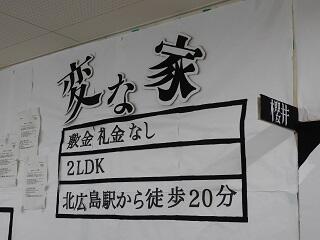 変な家
敷金礼金なし
2LDK
北広島駅から徒歩20分
櫻井